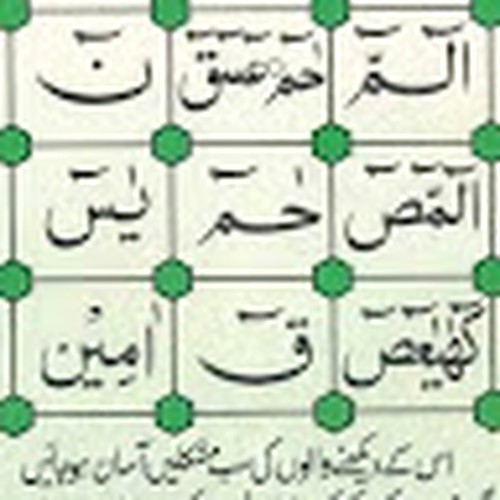 الٓمّٓ حٰمٓ عٓسٓقٓ نٓ
الٓمّٓصٓ حٰمٓ يٰسٓ
كٓهٰيٰعٓصٓ قٓ اٰمِيْن
اس کے دیکھنے والوں کی سب مشکلیں آسان ہو جائیں